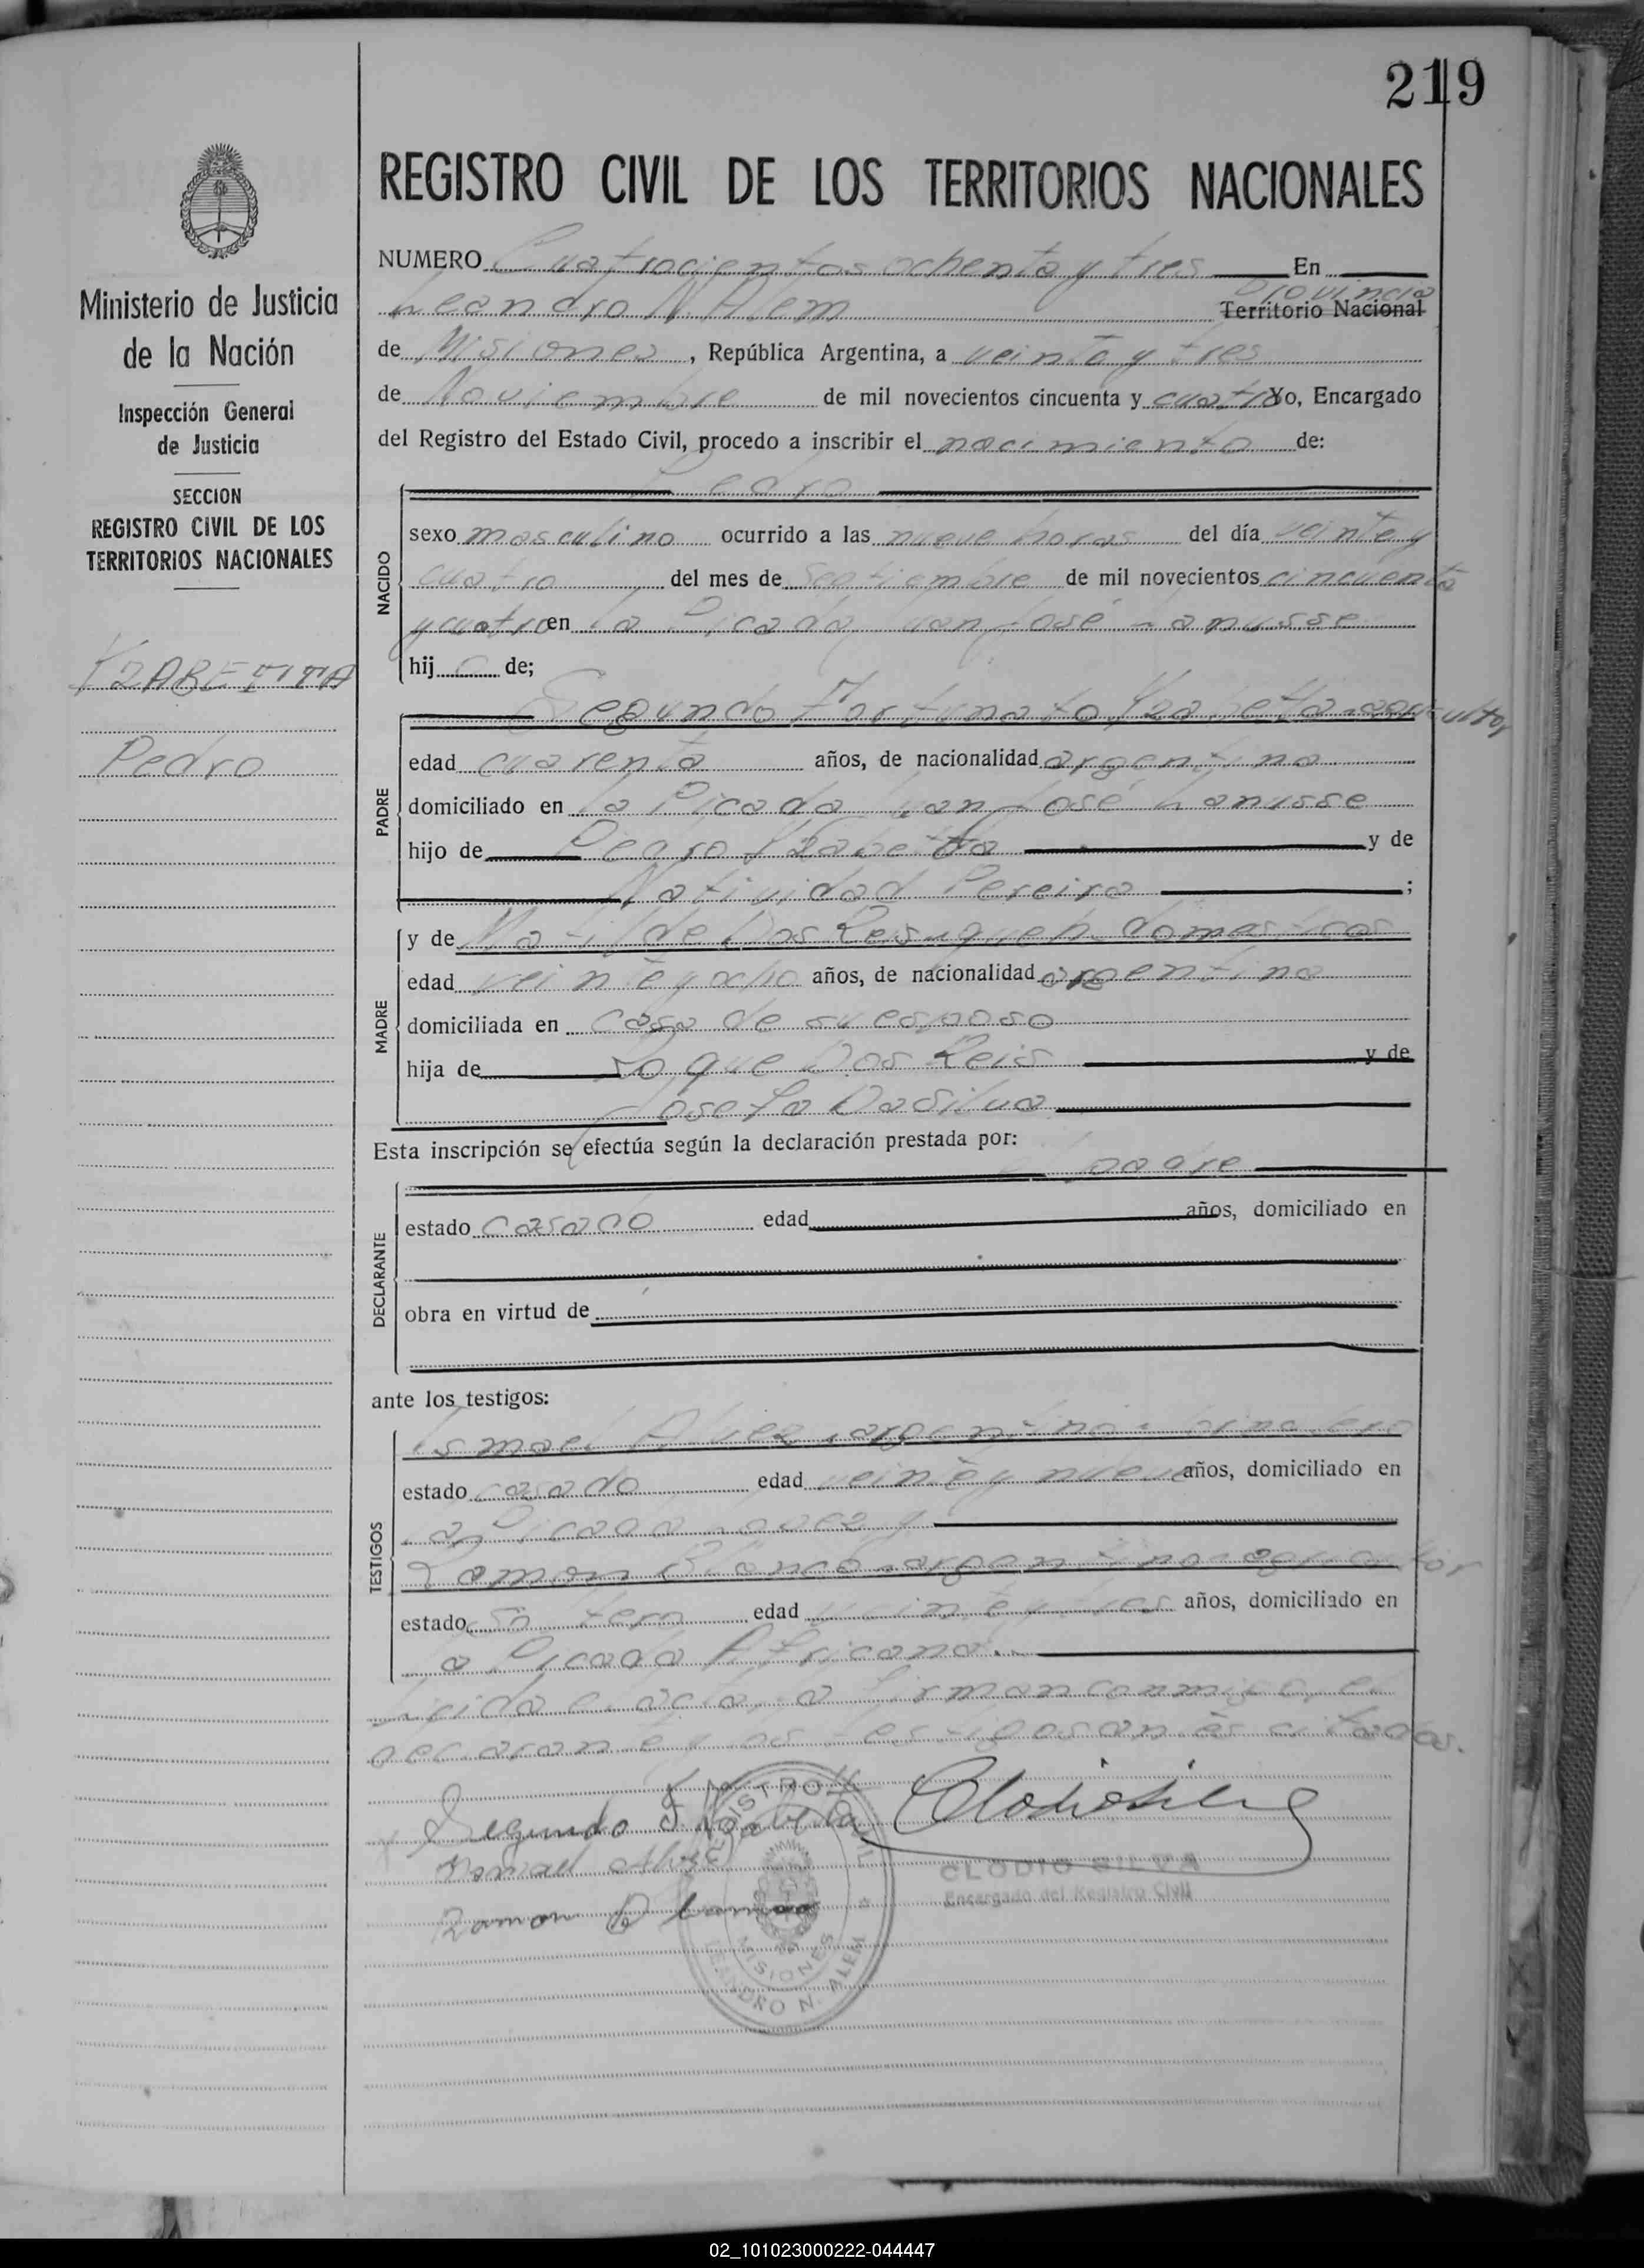 219
REGISTRO CIVIL DE LOS TERRITORIOS NACIONALES
Ministerio de Justicia
de la Nación
Inspección General
de Justicia
SECCION
REGISTRO CIVIL DE LOS
TERRITORIOS NACIONALES
YZABETTA
Pedro
NUMERO Cuatrocientos ochenta y tres En
Leandro N. Alem Provincia Territorio Nacional
de Misiones, República Argentina, a veinte y tres
de Noviembre de mil novecientos cincuenta y cuatro Yo, Encargado
del Registro del Estado Civil, procedo a inscribir el nacimiento de:
Pedro
NACIDO
sexo masculino ocurrido a las nueve horas del día veinte y
cuatro del mes de Septiembre de mil novecientos cincuenta
y cuatro en la Picada Juan José Lanusse
hijo de;
PADRE
Segundo Fortunato Yzabetta agricultor
edad cuarenta años, de nacionalidad argentina
domiciliado en la Picada Juan José Lanusse
hijo de Pedro Yzabetta y de
Natividad Pereira;
MADRE
y de Matilde Dos Reis, queh. domesticos
edad veinte y ocho años, de nacionalidad argentina
domiciliada en casa de su esposo
hija de Roque Dos Reis y de
Josefa Dasilva
Esta inscripción se efectúa según la declaración prestada por:
el padre
DECLARANTE
estado casado edad años, domiciliado en
obra en virtud de
ante los testigos:
TESTIGOS
Ismael Alvez, argentino
estado casado edad veinte y nueve años, domiciliado en
la Picada Lopez y
Ramon Blanco argentino agricultor
estado soltero edad veinte y tres años, domiciliado en
la Picada Africana.
Leida el acta, la firman conmigo, el
declarante y los testigos antes citados.
Segundo F. Yzabetta
Ismael Alvez
Ramon Blanco
Clodio Silva
CLODIO SILVA
Encargado del Registro Civil
REGISTRO CIVIL
MISIONES
LEANDRO N. ALEM
02_101023000222-044447